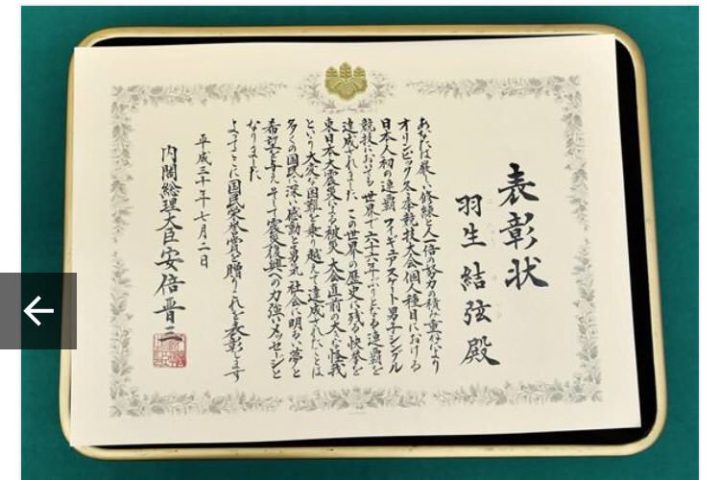 表彰状
羽生結弦殿
あなたは厳しい修練と人一倍の努力の積み重ねにより
オリンピック冬季競技大会個人種目における
日本人初の連覇 フィギュアスケート男子シングル
競技においても世界で六十六年ぶりとなる連覇を
達成されました この世界の歴史に残る快挙を
東日本大震災による被災 大会直前の大きな怪我
という大変な困難を乗り越えて達成されたことは
多くの国民に深い感動と勇気 社会に明るい夢と
希望を与え そして震災復興への力強いメッセージと
なりました
よってここに国民栄誉賞を贈りこれを表彰します
平成三十年七月二日
内閣総理大臣安倍晋三